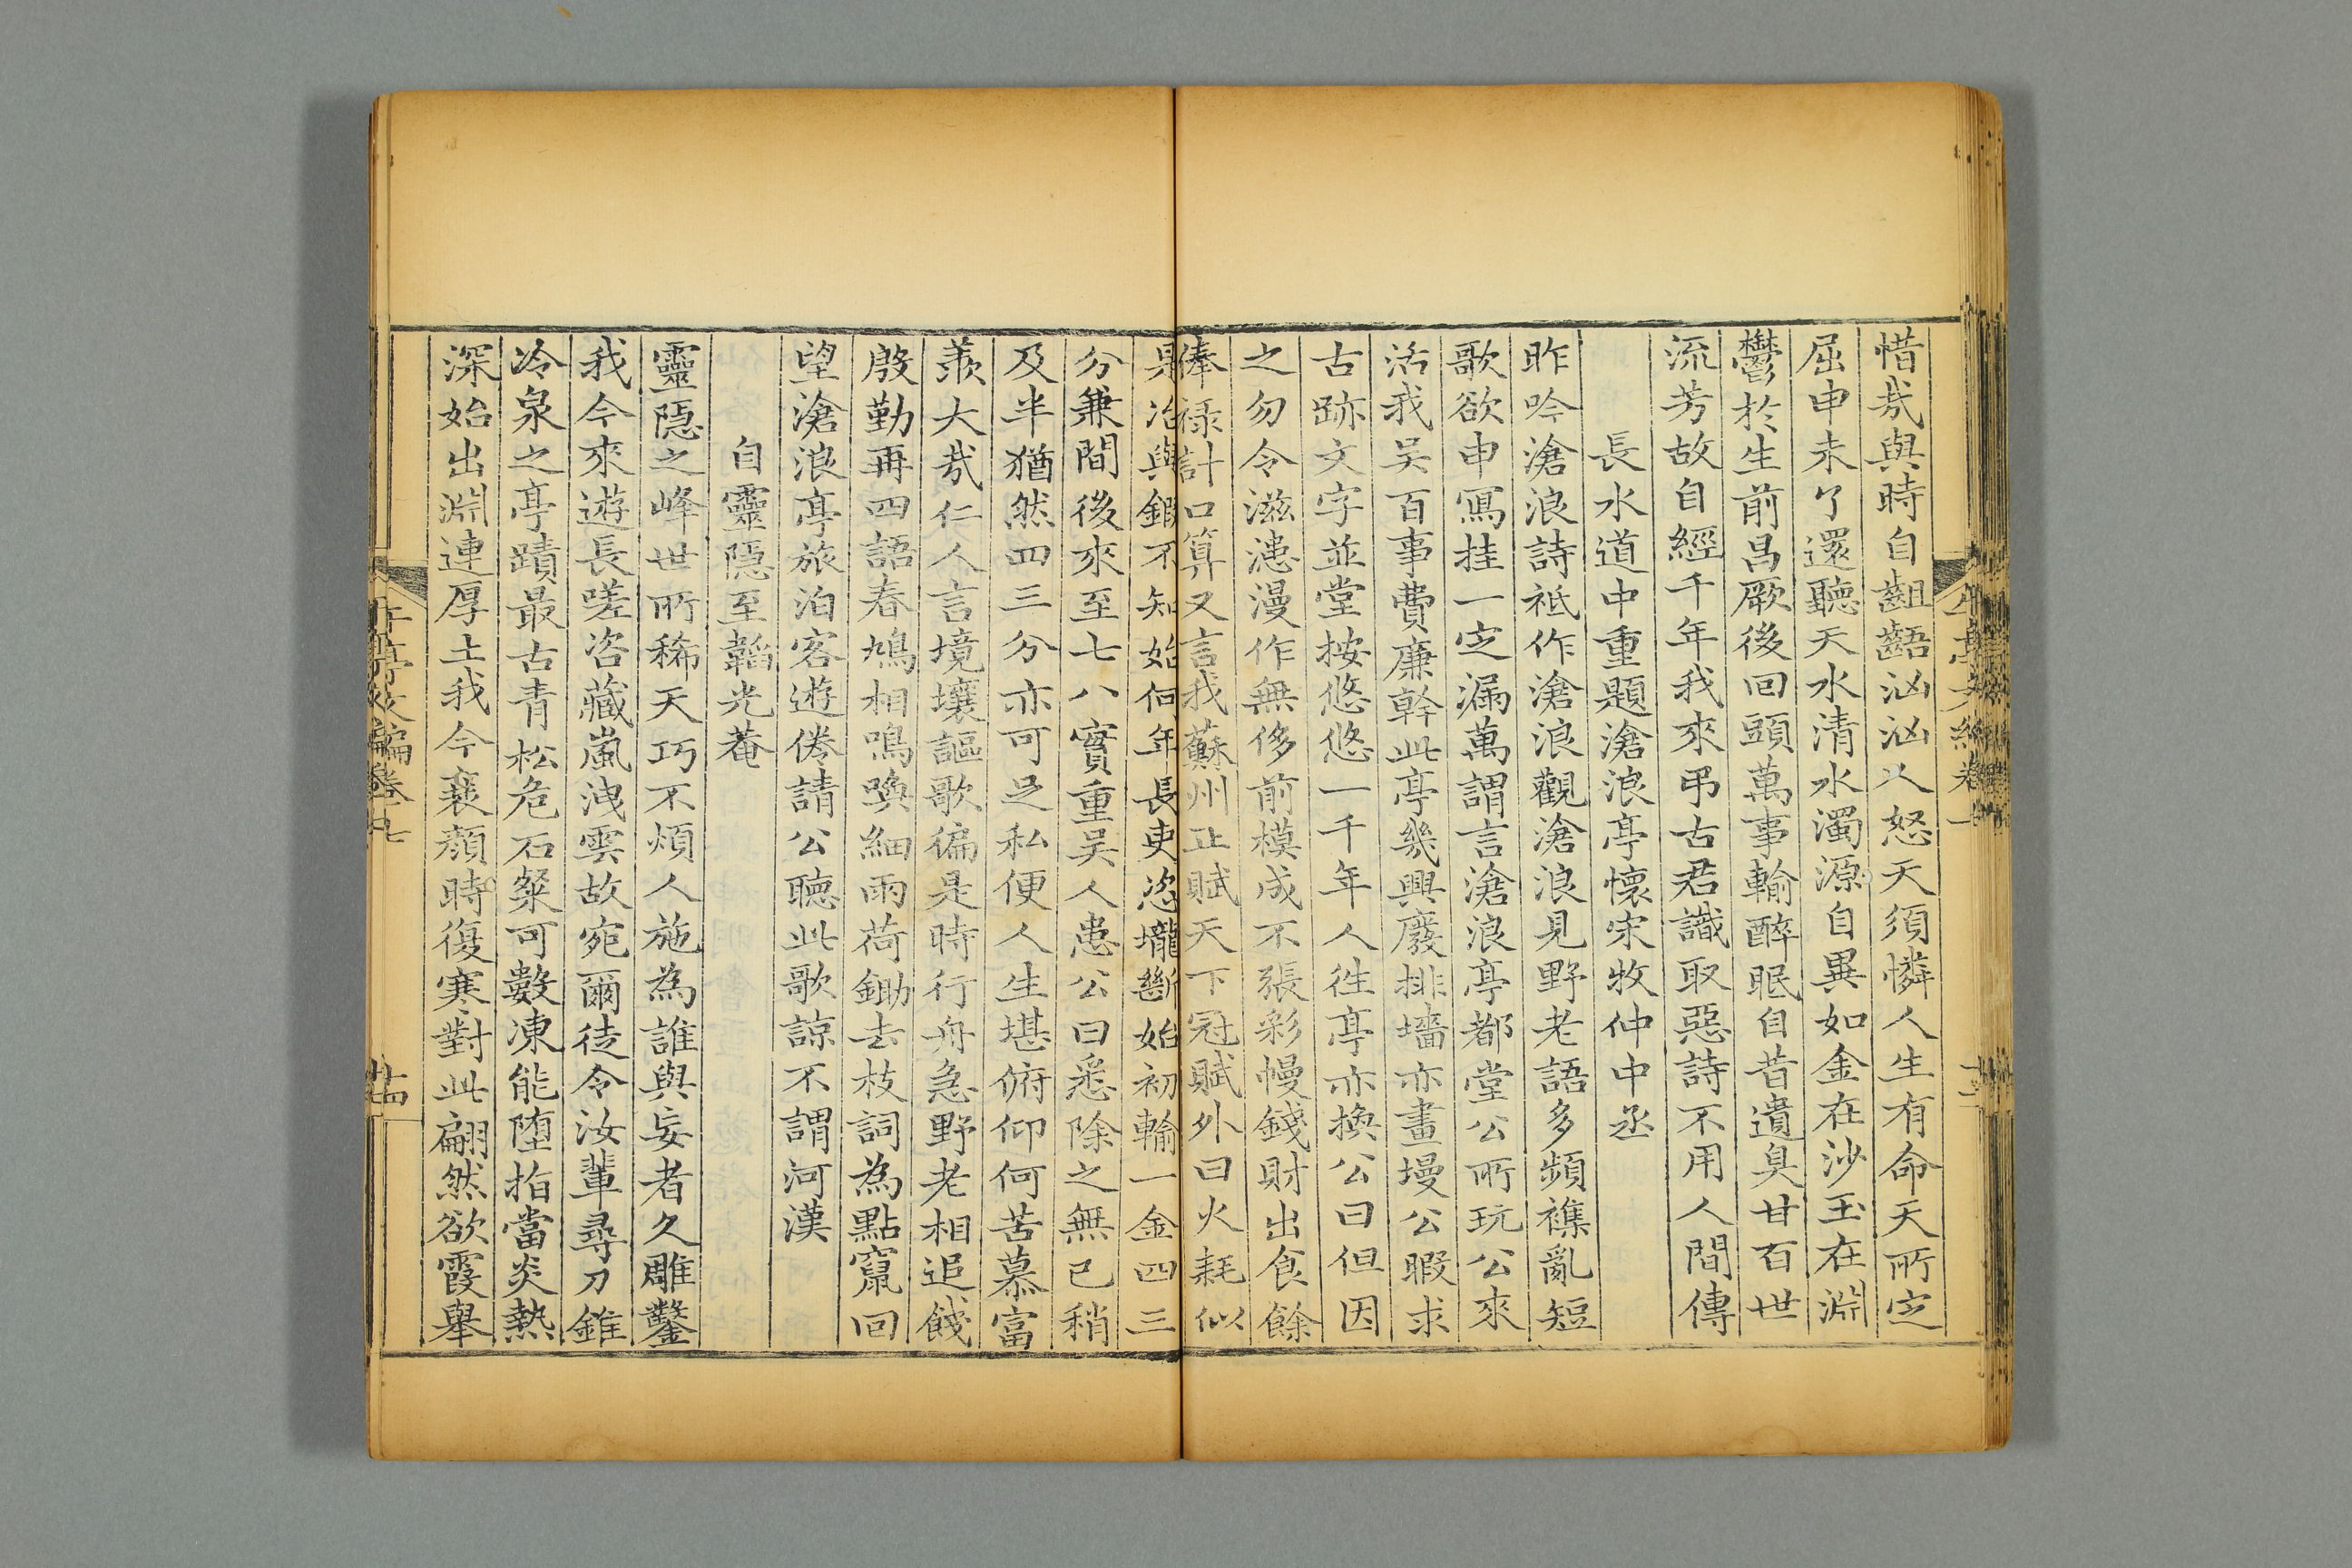 惜哉與時自齟齬汹汹人怒天須憐人生有命天所定
屈申未了還聽天水清水濁源自異如金在沙玉在淵
鬱於生前昌厥後回頭萬事輸醉眠自昔遺臭甘百世
流芳故自經千年我來弔古君識取惡詩不用人間傳
長水道中重題滄浪亭懷宋牧仲中丞
昨吟滄浪詩祗作滄浪觀滄浪見野老語多頻襍亂短
歌欲申寫挂一定漏萬謂言滄浪亭都堂公所玩公來
活我吴百事費廉幹此亭幾興廢排墻亦畫墁公暇求
古跡文字並堂按悠悠一千年人徃亭亦換公曰但因
之勿令滋漶漫作無侈前模成不張彩幔錢財出食餘
俸禄計口算又言我蘇州正賦天下冠賦外曰火耗似
具冶與鍜不知始何年長吏恣壠斷始初輸一金四三
分兼間後來至七八實重吴人患公曰悉除之無已稍
及半猶然四三分亦可足私便人生堪俯仰何苦慕富
羨大哉仁人言境壤謳歌徧是時行舟急野老相追餞
殷勤再四語春鳩相鳴喚細雨荷鋤去枝詞為點竄回
望滄浪亭旅泊客遊倦請公聽此歌諒不謂河漢
自靈隱至韜光菴
靈隠之峰世所稀天巧不煩人施為誰與妄者久雕鑿
我今來遊長嗟咨藏嵐洩雲故宛爾徒令汝輩尋刀錐
冷泉之亭蹟最古青松危石粲可數凍能堕指當炎熱
深始出淵連厚土我今衰顔時復寒對此翩然欲霞舉